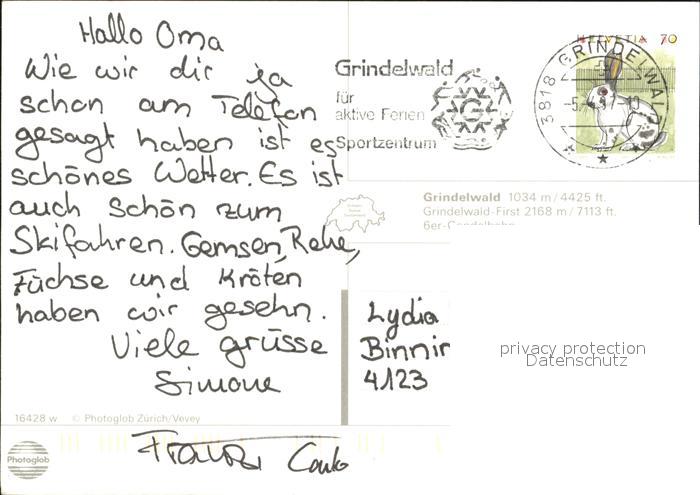 Hallo Oma
Wie wir dir ja
schon am Telefon
gesagt haben ist es
schönes Wetter. Es ist
auch schön zum
Skifahren. Gemsen, Rehe,
Füchse und Kröten
haben wir gesehn.
Viele grüsse
Simone
16428 w © Photoglob Zürich/Vevey
Photoglob
Carlo
Grindelwald
für
aktive Ferien
Sportzentrum
HELVETIA 70
3818 GRINDELWALD
Grindelwald 1034 m / 4425 ft.
Grindelwald-First 2168 m / 7113 ft.
Lydia
Binnin
4123
privacy protection
Datenschutz